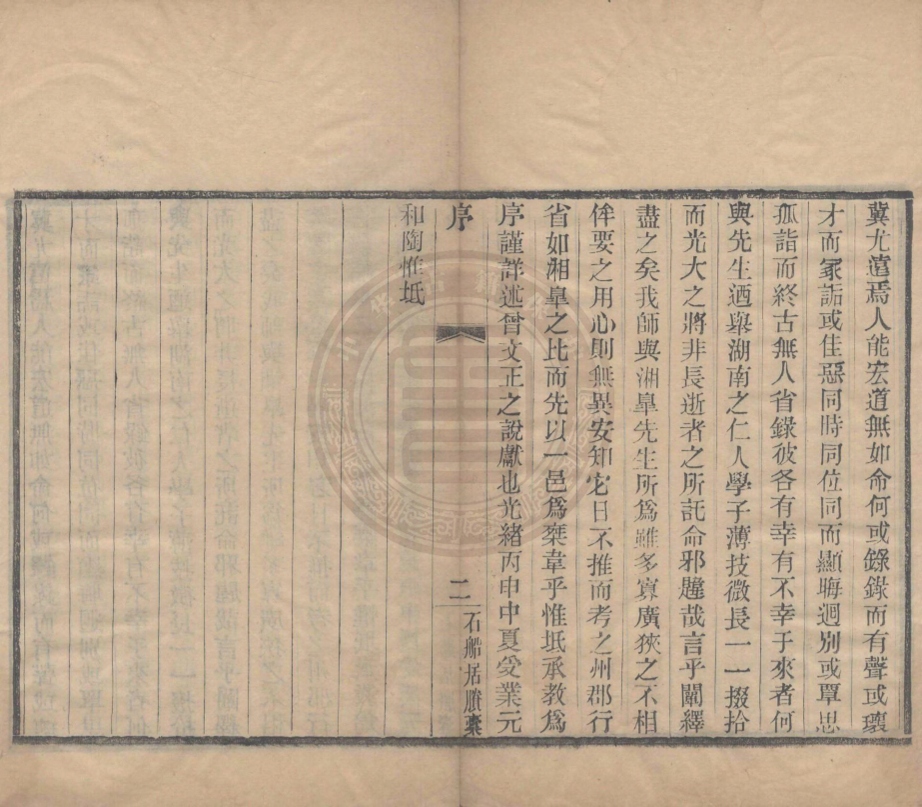 冀尤遠焉人能宏道無如命何或錄錄而有聲或瓌
才而冢詬或佳惡同時同位同而顯晦迥別或覃思
孤詣而終古無人省錄彼各有幸有不幸于來者何
與先生迺舉湖南之仁人學子薄技微長一一掇拾
而光大之將非長逝者之所託命邪韙哉言乎闡繹
盡之矣我師與湘皐先生所爲雖多寡廣狹之不相
侔要之用心則無異安知它日不推而考之州郡行
省如湘皐之比而先以一邑爲椉韋乎惟坻承教爲
序謹詳述曾文正之說獻也光緒丙申中夏受業元
序 二 石船居賸稾
和陶惟坻